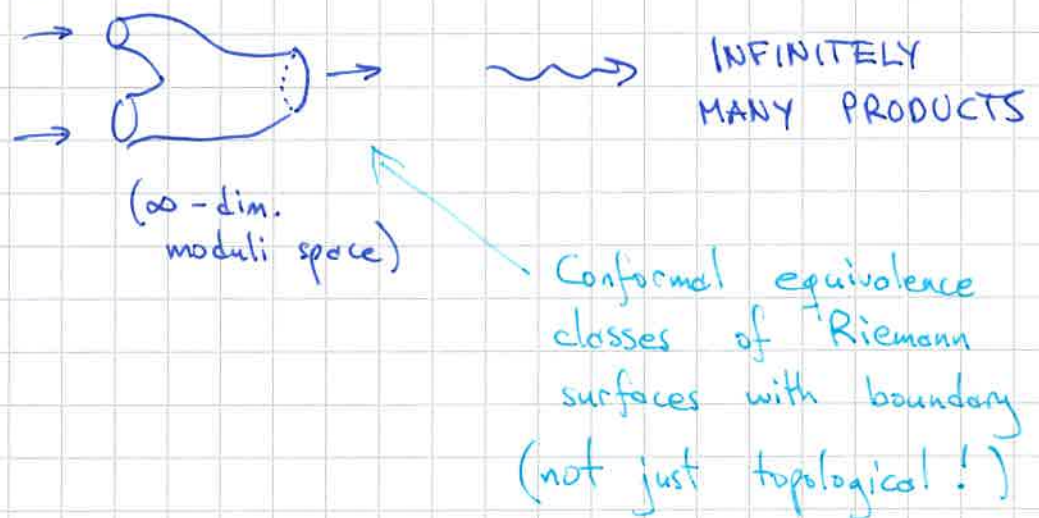 INFINITELY
MANY PRODUCTS
(∞-dim.
moduli space)
Conformal equivalence
classes of Riemann
surfaces with boundary
(not just topological!)